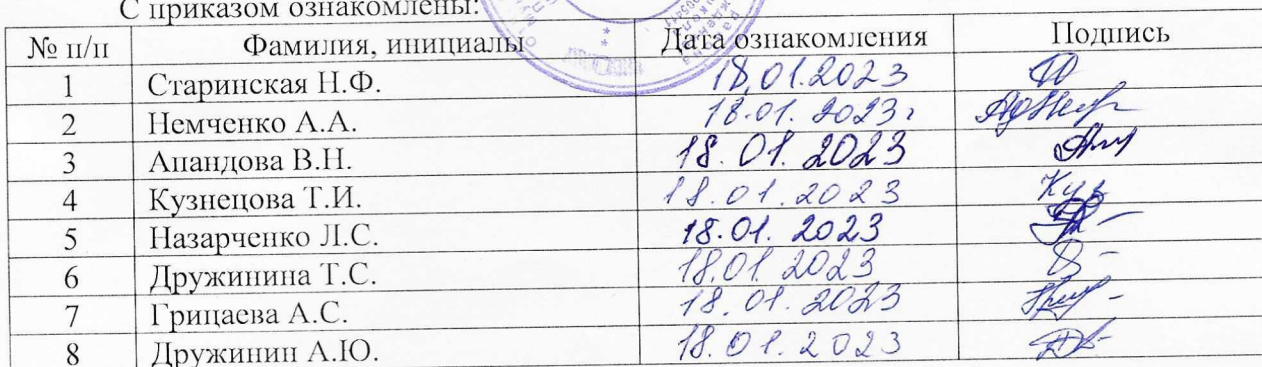 С приказом ознакомлены:
№ п/п Фамилия, инициалы Дата ознакомления Подпись
1 Старинская Н.Ф. 18.01.2023
2 Немченко А.А. 18.01.2023г
3 Апандова В.Н. 18.01.2023
4 Кузнецова Т.И. 18.01.2023 Куз
5 Назарченко Л.С. 18.01.2023
6 Дружинина Т.С. 18.01 2023
7 Грицаева А.С. 18.01.2023
8 Дружинин А.Ю. 18.01.2023